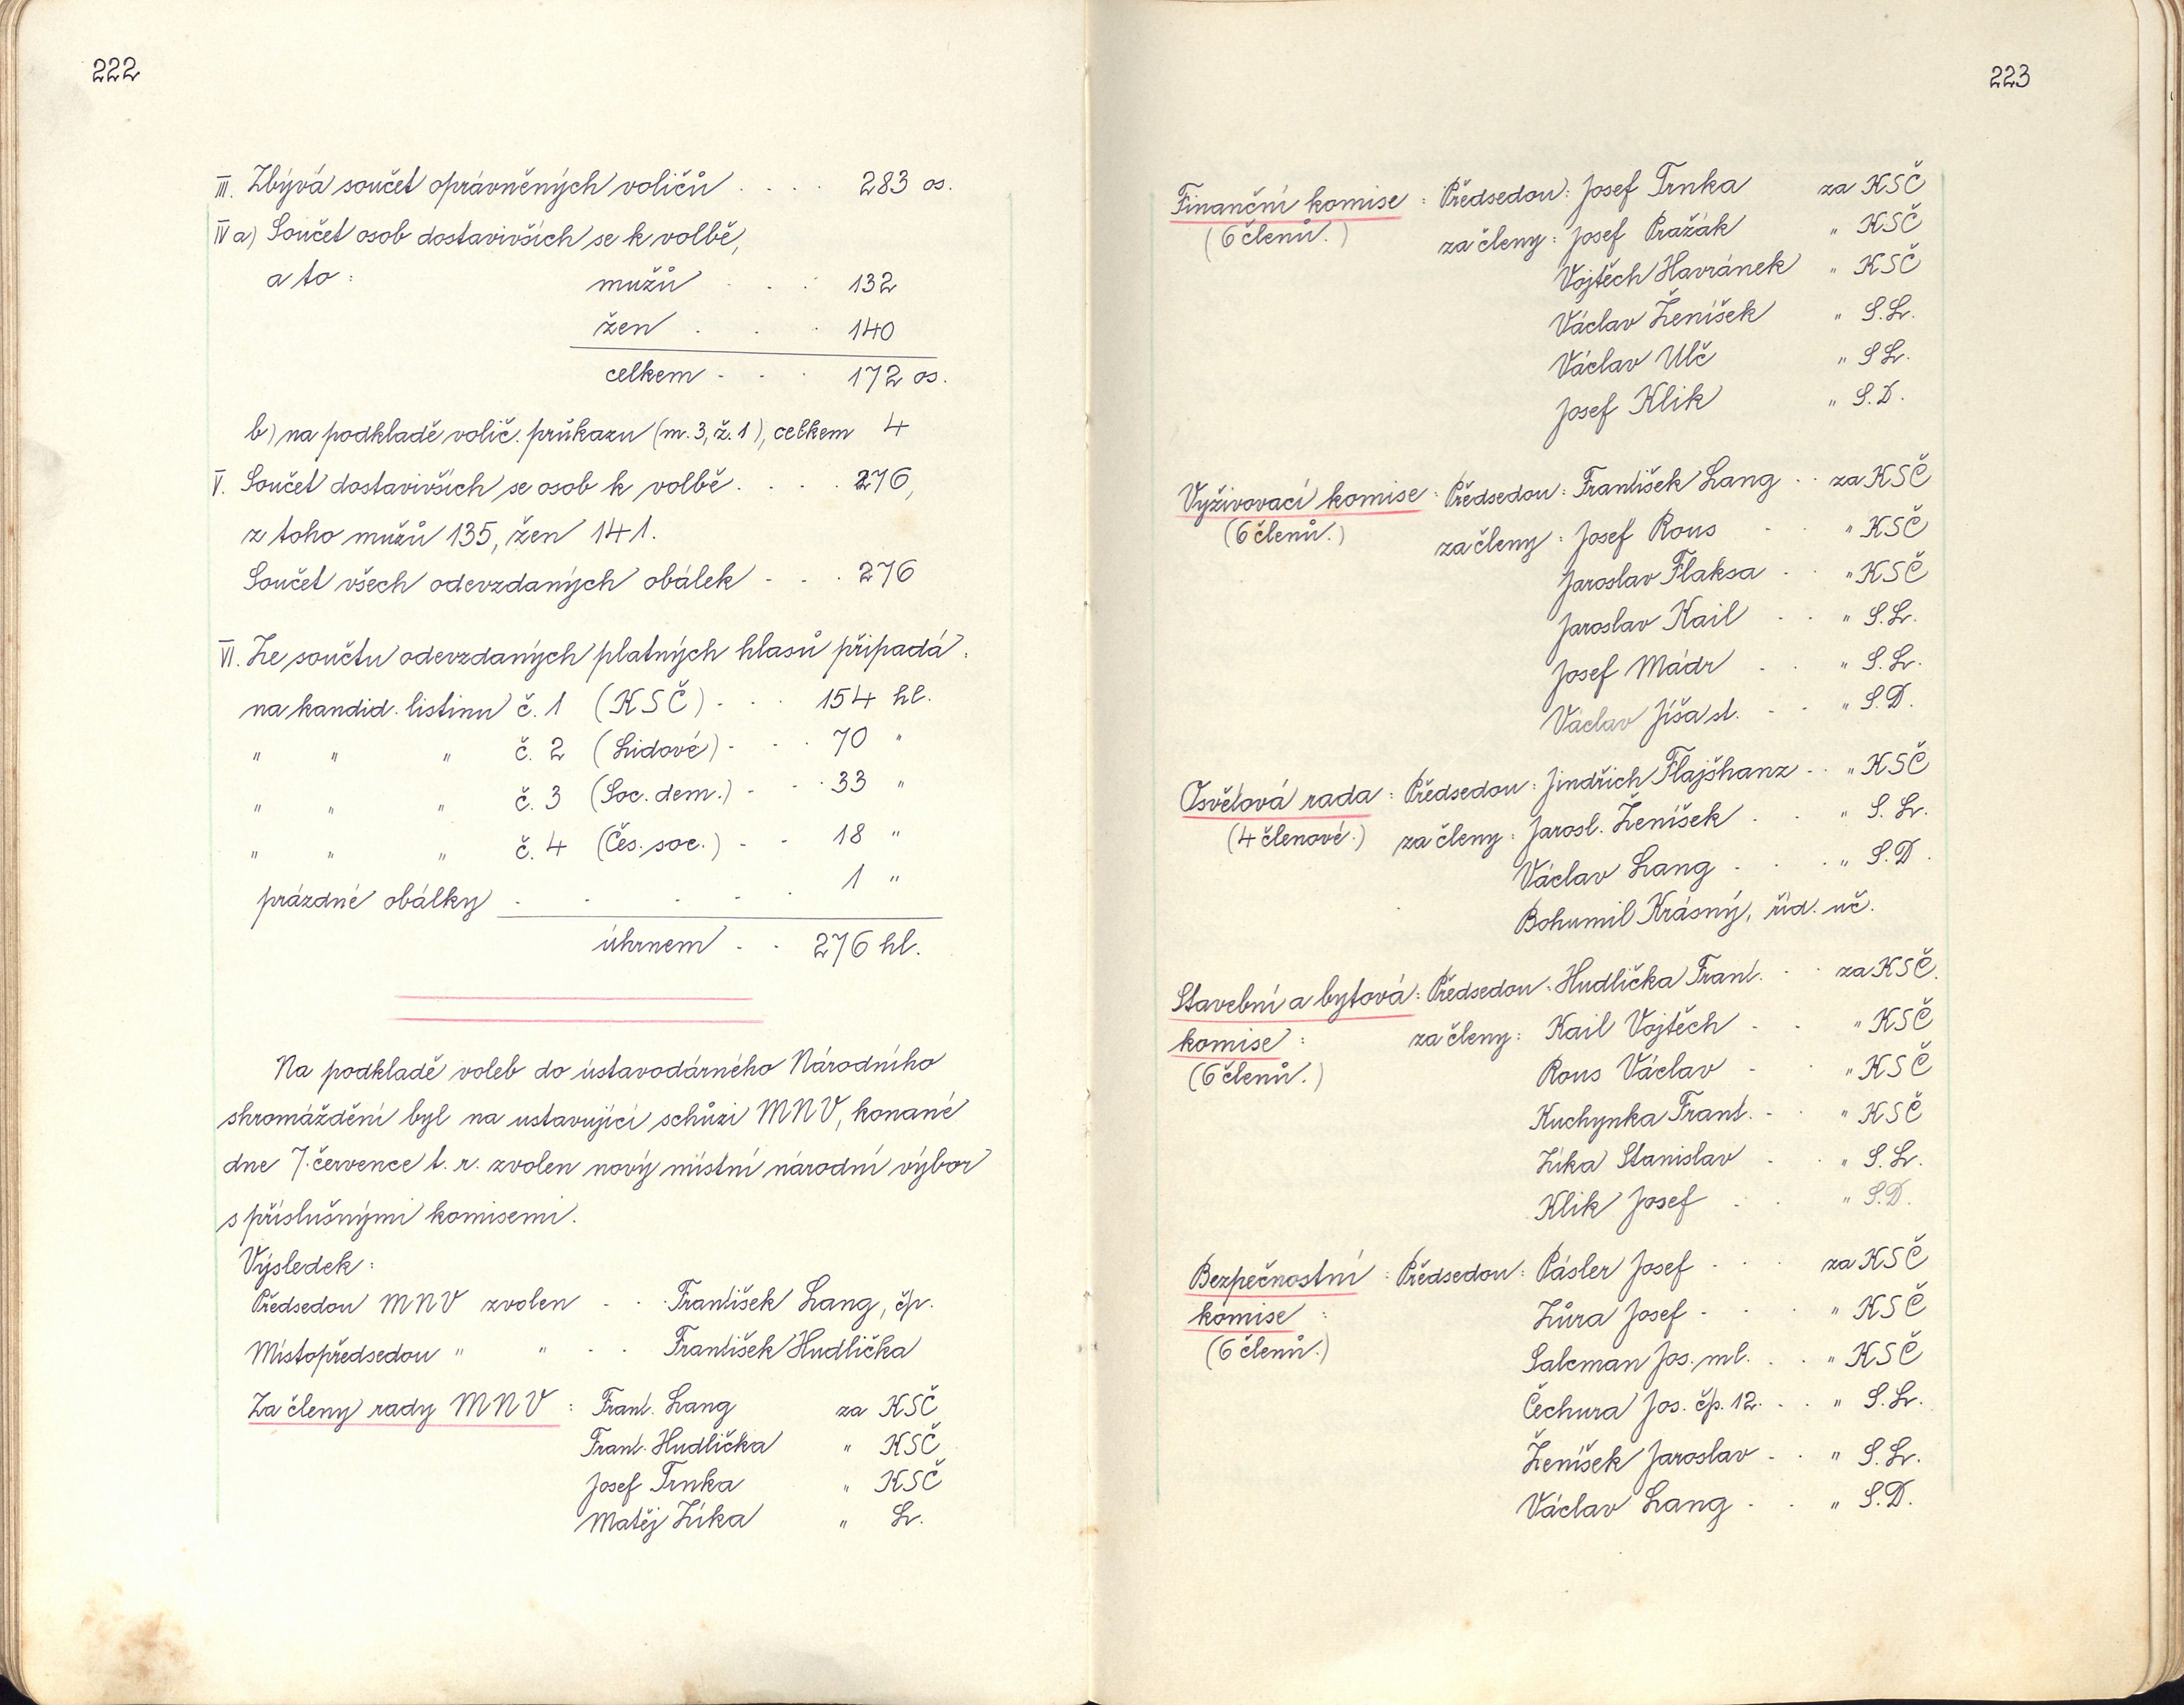 222
III. Zbývá součet oprávněných voličů . . . . 283 os.
IV a) Součet osob dostavivších se k volbě,
a to: mužů . . . 132
žen . . . 140
celkem . . . 172 os.
b) na podkladě volič. průkazu (m. 3, ž. 1), celkem 4
V. Součet dostavivších se osob k volbě . . . . 276,
z toho mužů 135, žen 141.
Součet všech odevzdaných obálek . . . 276
VI. Ze součtu odevzdaných platných hlasů připadá:
na kandid. listinu č. 1 (KSČ) . . . 154 hl.
" " " č. 2 (Lidové) . . . 70 "
" " " č. 3 (Soc. dem.) . . . 33 "
" " " č. 4 (Čes. soc.) . . 18 "
prázdné obálky . . . . . 1 "
úhrnem . . 276 hl.
Na podkladě voleb do ústavodárného Národního
shromáždění byl na ustavující schůzi MNV, konané
dne 7. července t. r. zvolen nový místní národní výbor
s příslušnými komisemi.
Výsledek:
Předsedou MNV zvolen . . . František Lang, čp.
Místopředsedou " " . . František Hudlička
Za členy rady MNV : Frant. Lang za KSČ
Frant. Hudlička " KSČ
Josef Trnka " KSČ
Matěj Zíka " L.
223
Finanční komise : Předsedou: Josef Trnka za KSČ
(6 členů.) za členy: Josef Pražák " KSČ
Vojtěch Havránek " KSČ
Václav Ženíšek " S.L.
Václav Ulč " S L.
Josef Klik " S.D.
Vyživovací komise : Předsedou: František Lang . . za KSČ
(6 členů.) za členy: Josef Rous . . " KSČ
Jaroslav Flaksa . . " KSČ
Jaroslav Kail . . " S.L.
Josef Mádr . . " S.L.
Václav Jíša st. . . " S.D.
Osvětová rada : Předsedou: Jindřich Flajšhanz . . " KSČ
(4 členové.) za členy: Jarosl. Ženíšek . . " S. L.
Václav Lang . . . " S.D.
Bohumil Krásný, říd. uč.
Stavební a bytová : Předsedou: Hudlička Frant. . . za KSČ.
komise : za členy: Kail Vojtěch . . " KSČ
(6 členů.) Rous Václav . . " KSČ
Kuchynka Frant. . . " KSČ
Zíka Stanislav . . " S.L.
Klik Josef . . " S.D.
Bezpečnostní : Předsedou: Pásler Josef . . . za KSČ
komise : Zůra Josef . . . " KSČ
(6 členů.) Salcman Jos. ml. . . " KSČ
Čechura Jos. čp. 12. . . " S.L.
Ženíšek Jaroslav . . " S.L.
Václav Lang . . " S.D.